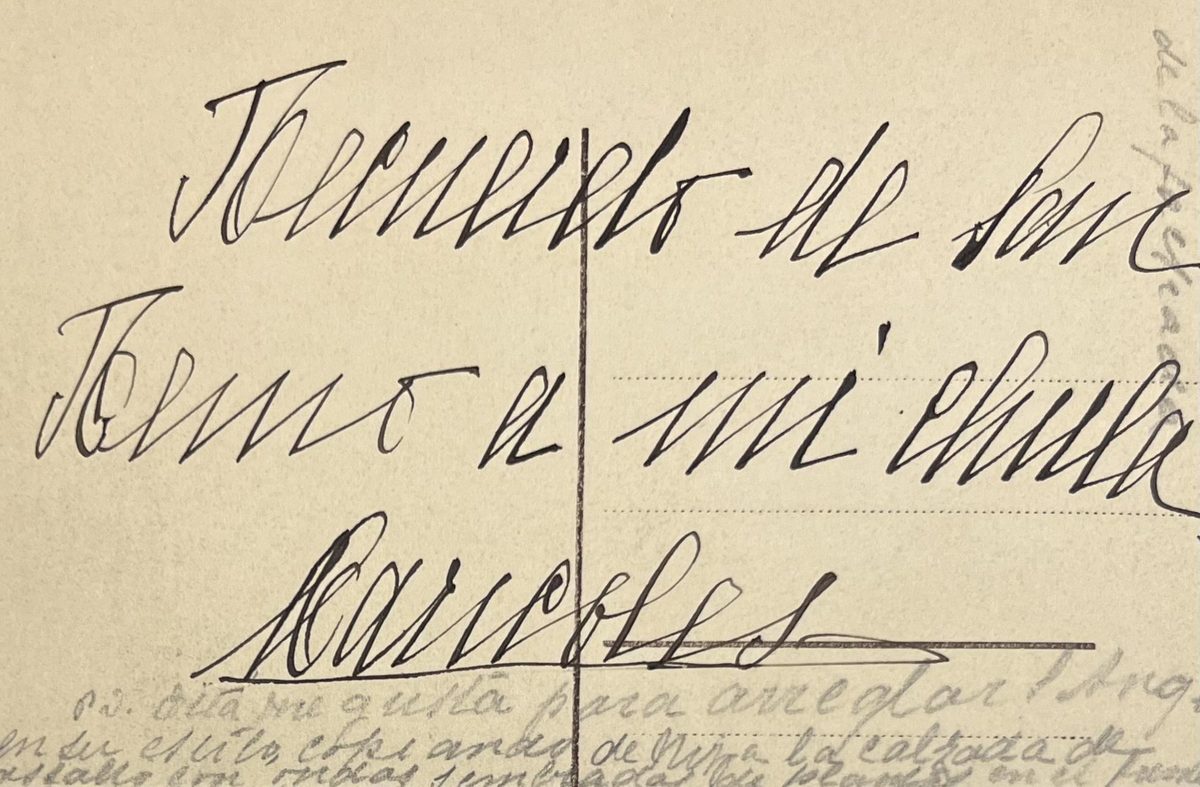 Recuerdo de San
Remo a mi chula
Caricoles
P.D. Esta me gusta para arreglar l'Ang
en su estilo, copiando de Niza la calzada de
asfalto con ondas sembradas de plantas en el
de la